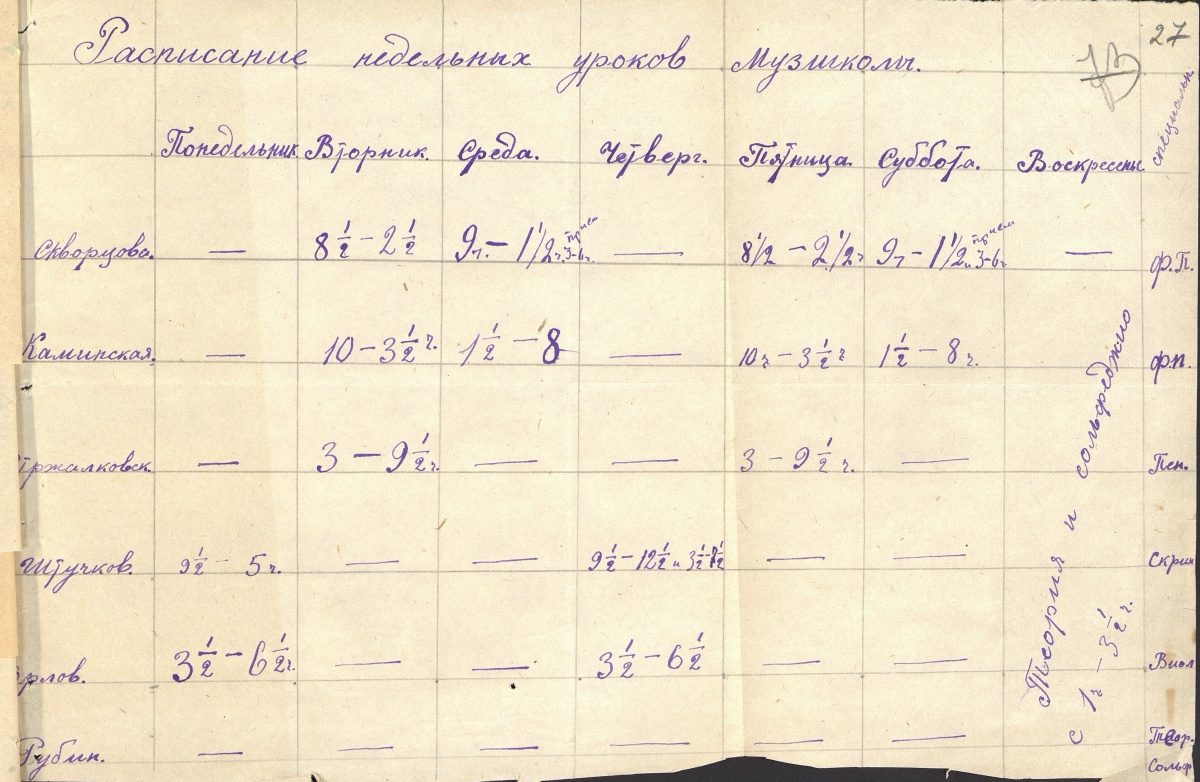 27
Расписание недельных уроков Музшколы.
Понедельник. Вторник. Среда. Четверг. Пятница. Суббота. Воскресень специальн.
Скворцова. — 8 1/2 - 2 1/2 9ч. - 1 1/2 ч. прием 3-6ч. — 8 1/2 - 2 1/2 ч 9ч - 1 1/2 ч. прием 3-6ч — ф.п.
Каминская. — 10 - 3 1/2 ч. 1 1/2 - 8 — 10ч - 3 1/2 ч 1 1/2 - 8 ч. ф.п.
тржалковск. — 3 - 9 1/2 ч. — — 3 - 9 1/2 ч. — Пен.
Штучков. 9 1/2 - 5 ч. — — 9 1/2 - 12 1/2 и 3 1/2 - — — Скрип
рлов. 3 1/2 - 6 1/2 ч. — — 3 1/2 - 6 1/2 — — Виол
Рубин. — — — — — — Теор.
Сольф
Теория и сольфеджио
с 1ч - 3 1/2 ч.